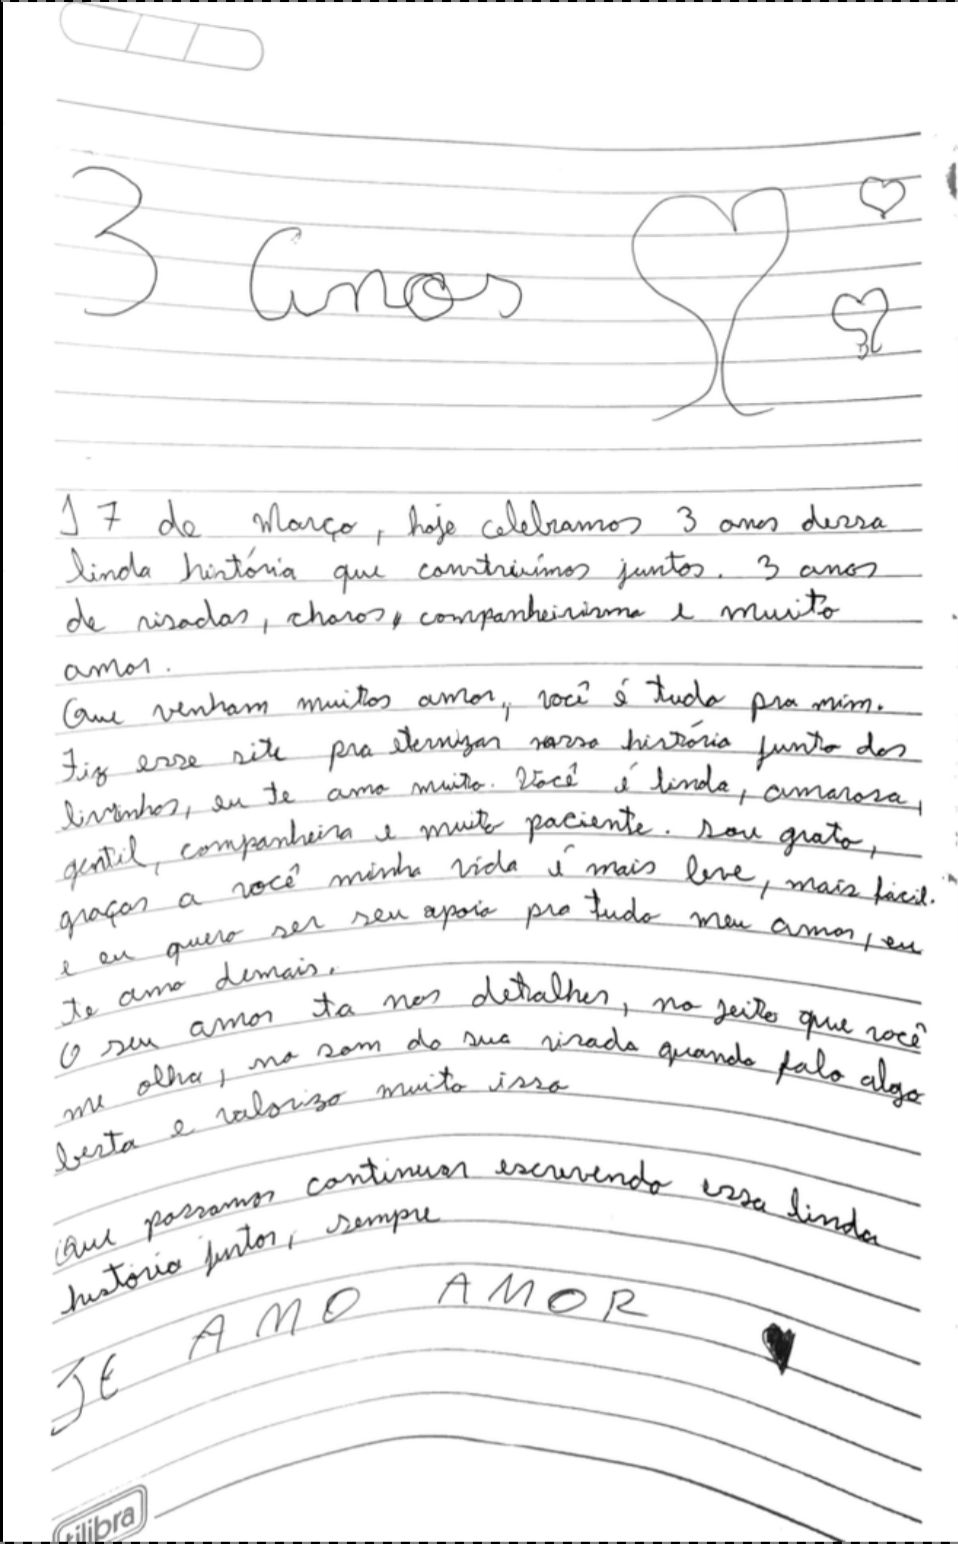 3 Anos
17 de Março, hoje celebramos 3 anos dessa
linda história que construímos juntos. 3 anos
de risadas, choros, companheirismo e muito
amor.
Que venham muitos amor, você é tudo pra mim.
Fiz esse site pra eternizar nossa história junto dos
livrinhos, eu te amo muito. Você é linda, amorosa,
gentil, companheira e muito paciente. Sou grato,
graças a você minha vida é mais leve, mais fácil.
e eu quero ser seu apoio pra tudo meu amor, eu
te amo demais.
O seu amor ta nos detalhes, no jeito que você
me olha, no som da sua risada quando falo algo
besta e valorizo muito isso
Que possamos continuar escrevendo essa linda
história juntos, sempre
TE AMO AMOR
tilibra